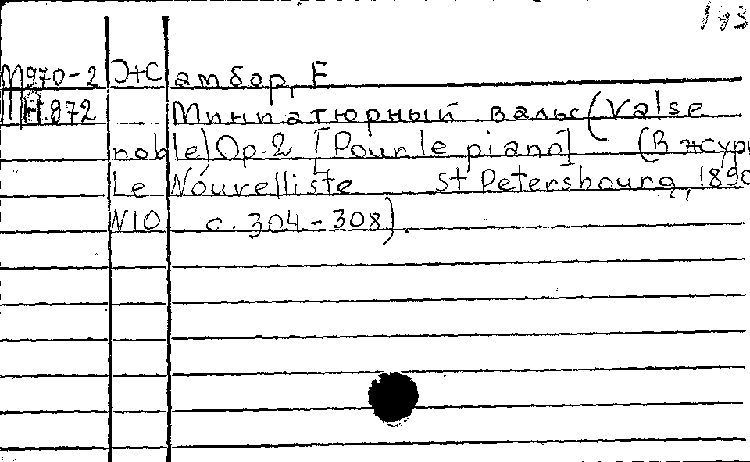 193
М970-2 Жамбор, Е
МП.872 Миниатюрный вальс (Valse
noble) Op. 2 [Pour le piano] (В журн
Le Nouvelliste St Petersbourg, 1890
N10 c. 304-308).